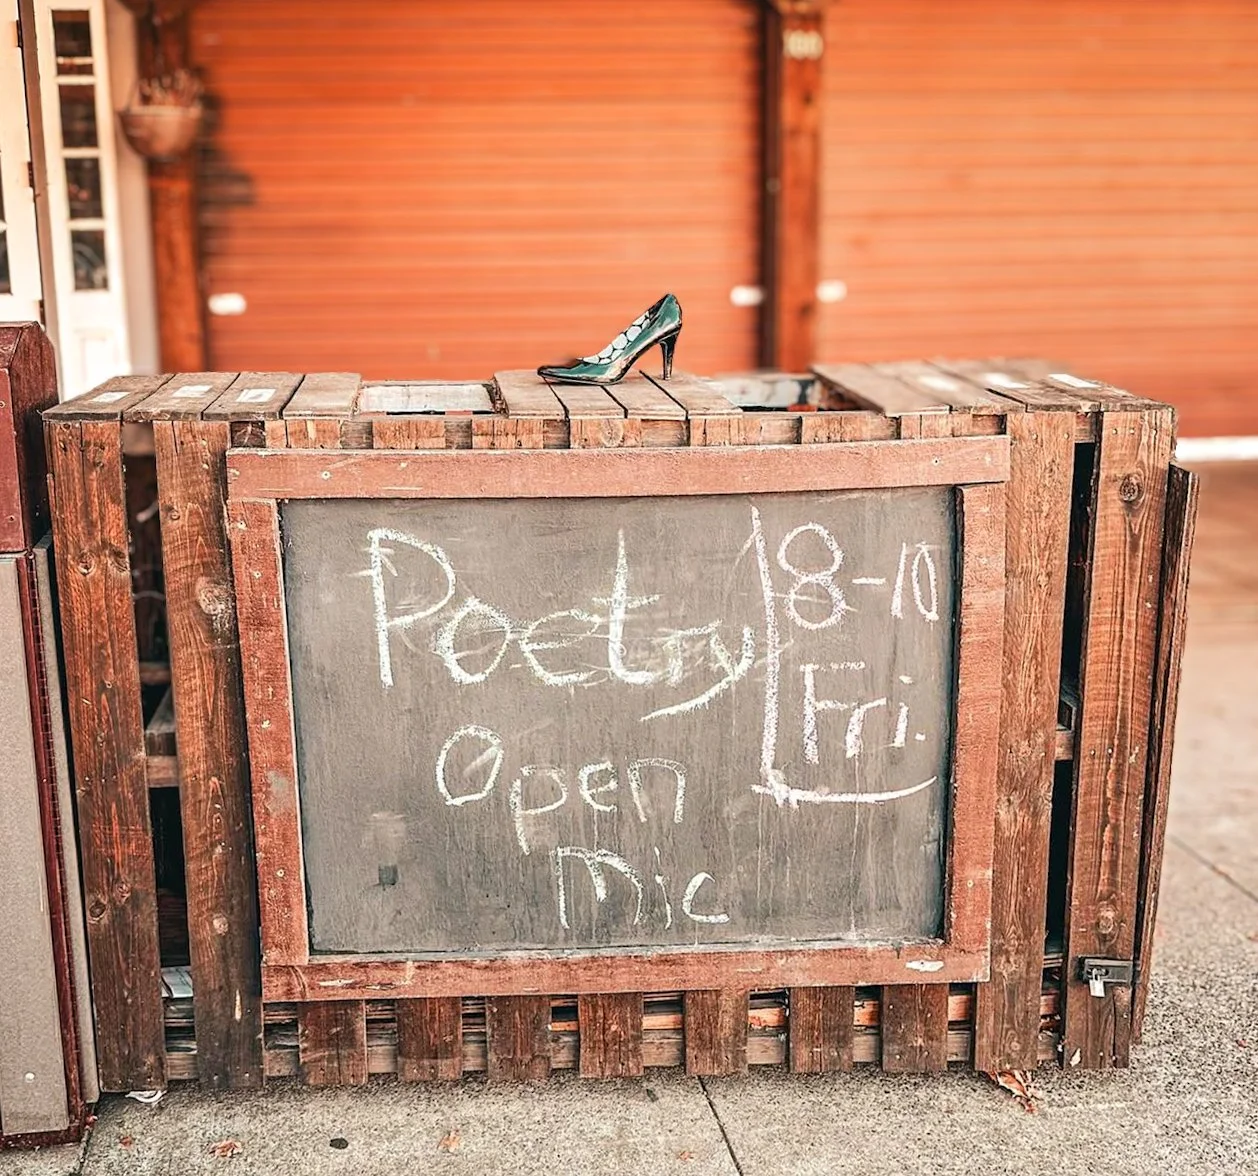 Poetry
Open
mic
8-10
Fri.